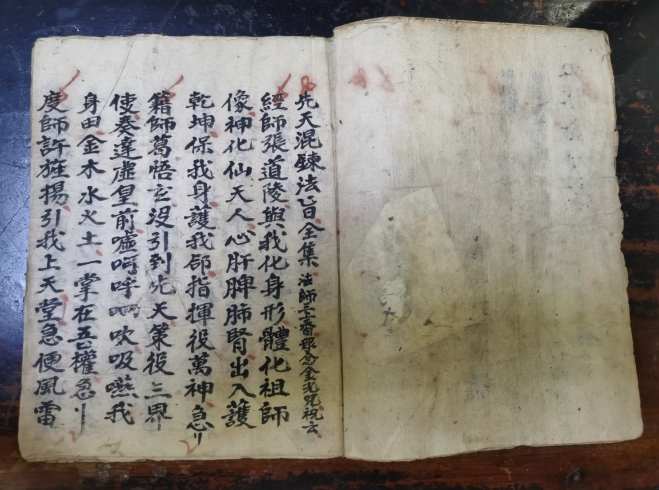 先天混鍊法旨全集 法師三香跟念金光咒祝云
經師張道陵與我化身形體化祖師
像神化仙天人心肝脾肺腎出入護
乾坤保我身護我部指揮役萬神急刂
籍師葛悟玄沒引到先天策役三界
使奏達虛皇前噓呵呼呬吹吸嘘我
身田金木水火土一掌在吾權急刂
度師許旌揚引我上天堂急便風雷